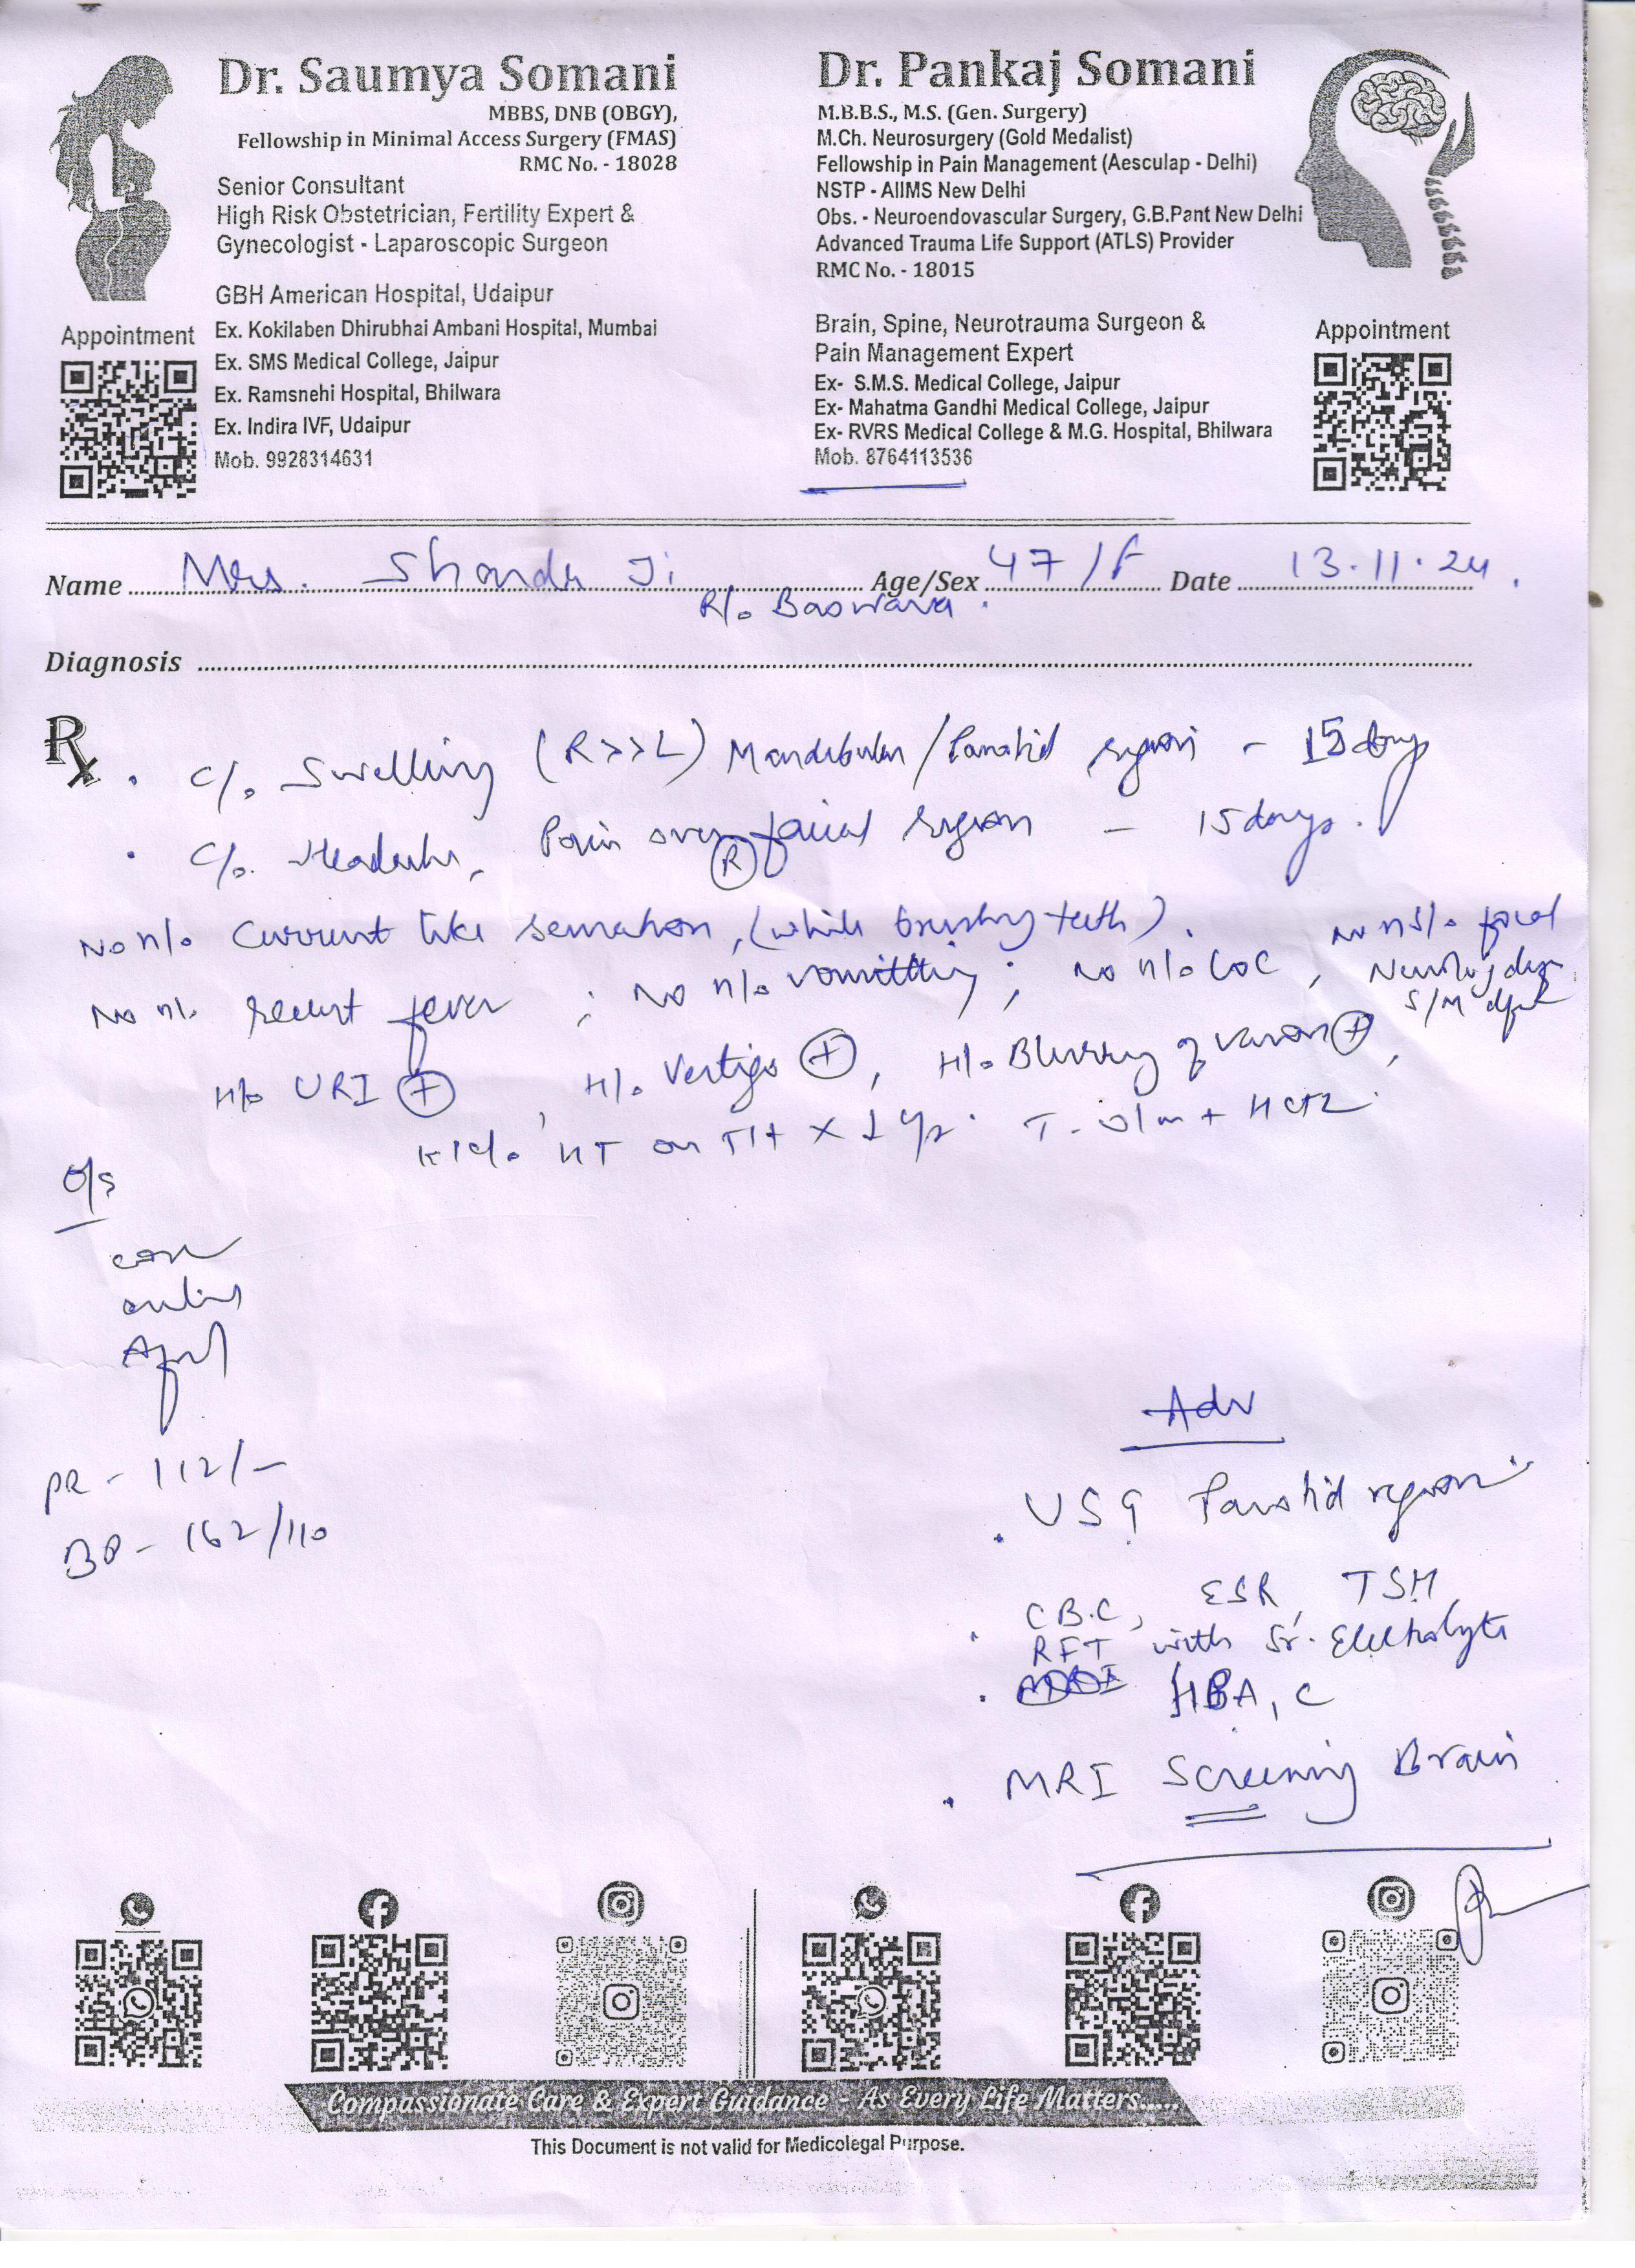 Dr. Saumya Somani
MBBS, DNB (OBGY),
Fellowship in Minimal Access Surgery (FMAS)
RMC No. - 18028
Senior Consultant
High Risk Obstetrician, Fertility Expert &
Gynecologist - Laparoscopic Surgeon
GBH American Hospital, Udaipur
Ex. Kokilaben Dhirubhai Ambani Hospital, Mumbai
Ex. SMS Medical College, Jaipur
Ex. Ramsnehi Hospital, Bhilwara
Ex. Indira IVF, Udaipur
Mob. 9928314631
Appointment
Dr. Pankaj Somani
M.B.B.S., M.S. (Gen. Surgery)
M.Ch. Neurosurgery (Gold Medalist)
Fellowship in Pain Management (Aesculap - Delhi)
NSTP - AIIMS New Delhi
Obs. - Neuroendovascular Surgery, G.B.Pant New Delhi
Advanced Trauma Life Support (ATLS) Provider
RMC No. - 18015
Brain, Spine, Neurotrauma Surgeon &
Pain Management Expert
Ex- S.M.S. Medical College, Jaipur
Ex- Mahatma Gandhi Medical College, Jaipur
Ex- RVRS Medical College & M.G. Hospital, Bhilwara
Mob. 8764113536
Appointment
Name Mrs. Sharda Ji Age/Sex 47/F Date 13.11.24.
R/o
Diagnosis
Rx
. C/o. Swelling (R>>L) Mandibular/Parotid region - 15 days
. C/o. Headache, Pain over (R) facial region - 15 days.
No h/o. current like sensation, (while brushing teeth).
No h/o recent fever ; No h/o vomitting ; No h/o LOC , No h/o focal
H/o URI (+) , H/o Vertigo (+) , H/o Blurring of vision (+) ,
K/c/o. HT on T/t x 1 yr. T. Olm + HCTZ
O/E
PR - 112/-
BP - 162/110
Adv
. USG Parotid region
. CBC, ESR, TSH
RFT with Sr. Electrolyte
. HBA1C
. MRI Screening Brain
Compassionate Care & Expert Guidance - As Every Life Matters.....
This Document is not valid for Medicolegal Purpose.